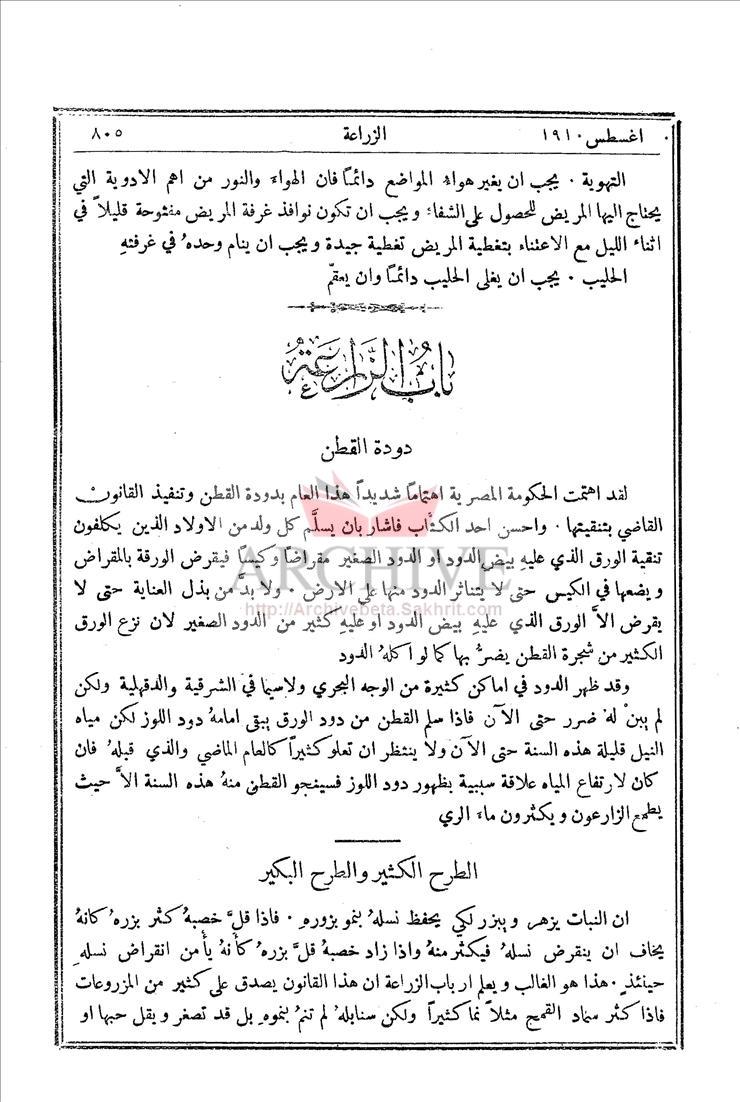 اغسطس ١٩١٠ الزراعة ٨٠٥
التهوية . يجب ان يغير هواءُ المواضع دائمًا فان الهواء والنور من اهم الادوية التي
يحتاج اليها المريض للحصول على الشفاء ويجب ان تكون نوافذ غرفة المريض مفتوحة قليلاً في
اثناء الليل مع الاعتناء بتغطية المريض تغطية جيدة ويجب ان ينام وحدهُ في غرفتهِ
الحليب . يجب ان يغلى الحليب دائمًا وان يعقّم
باب الزراعة
دودة القطن
لقد اهتمت الحكومة المصرية اهتمامًا شديداً هذا العام بدودة القطن وتنفيذ القانون
القاضي بتنقيتها . واحسن احد الكتَّاب فاشار بان يسلَّم كل ولد من الاولاد الذين يكلفون
تنقية الورق الذي عليهِ بيض الدود او الدود الصغير مقراضًا وكيسًا فيقرض الورقة بالمقراض
ويضعها في الكيس حتى لا يتناثر الدود منها على الارض . ولا بدَّ من بذل العناية حتى لا
يقرض الاَّ الورق الذي عليهِ بيض الدود او عليهِ كثير من الدود الصغير لان نزع الورق
الكثير من شجرة القطن يضرُّ بها كما لو اكلهُ الدود
وقد ظهر الدود في اماكن كثيرة من الوجه البحري ولاسيما في الشرقية والدقهلية ولكن
لم يبنْ لهُ ضرر حتى الآن فاذا سلم القطن من دود الورق يبقى امامهُ دود اللوز لكن مياه
النيل قليلة هذه السنة حتى الآن ولا ينتظر ان تعلو كثيراً كالعام الماضي والذي قبلهُ فان
كان لارتفاع المياه علاقة سببية بظهور دود اللوز فسينجو القطن منهُ هذه السنة الاَّ حيث
يطمع الزارعون ويكثرون ماء الري
الطرح الكثير والطرح البكير
ان النبات يزهر ويبزر لكي يحفظ نسلهُ بنمو بزورهِ . فاذا قلَّ خصبهُ كثر بزرهُ كانهُ
يخاف ان ينقرض نسلهُ فيكثر منهُ واذا زاد خصبهُ قلَّ بزرهُ كأنهُ يأمن انقراض نسلهِ
حينئذٍ . هذا هو الغالب ويعلم ارباب الزراعة ان هذا القانون يصدق على كثير من المزروعات
فاذا كثر سماد القمح مثلاً نما كثيراً ولكن سنابلهُ لم تنمُ بنموهِ بل قد تصغر ويقل حبها او
ARCHIVE
http://Archivebeta.Sakhrit.com